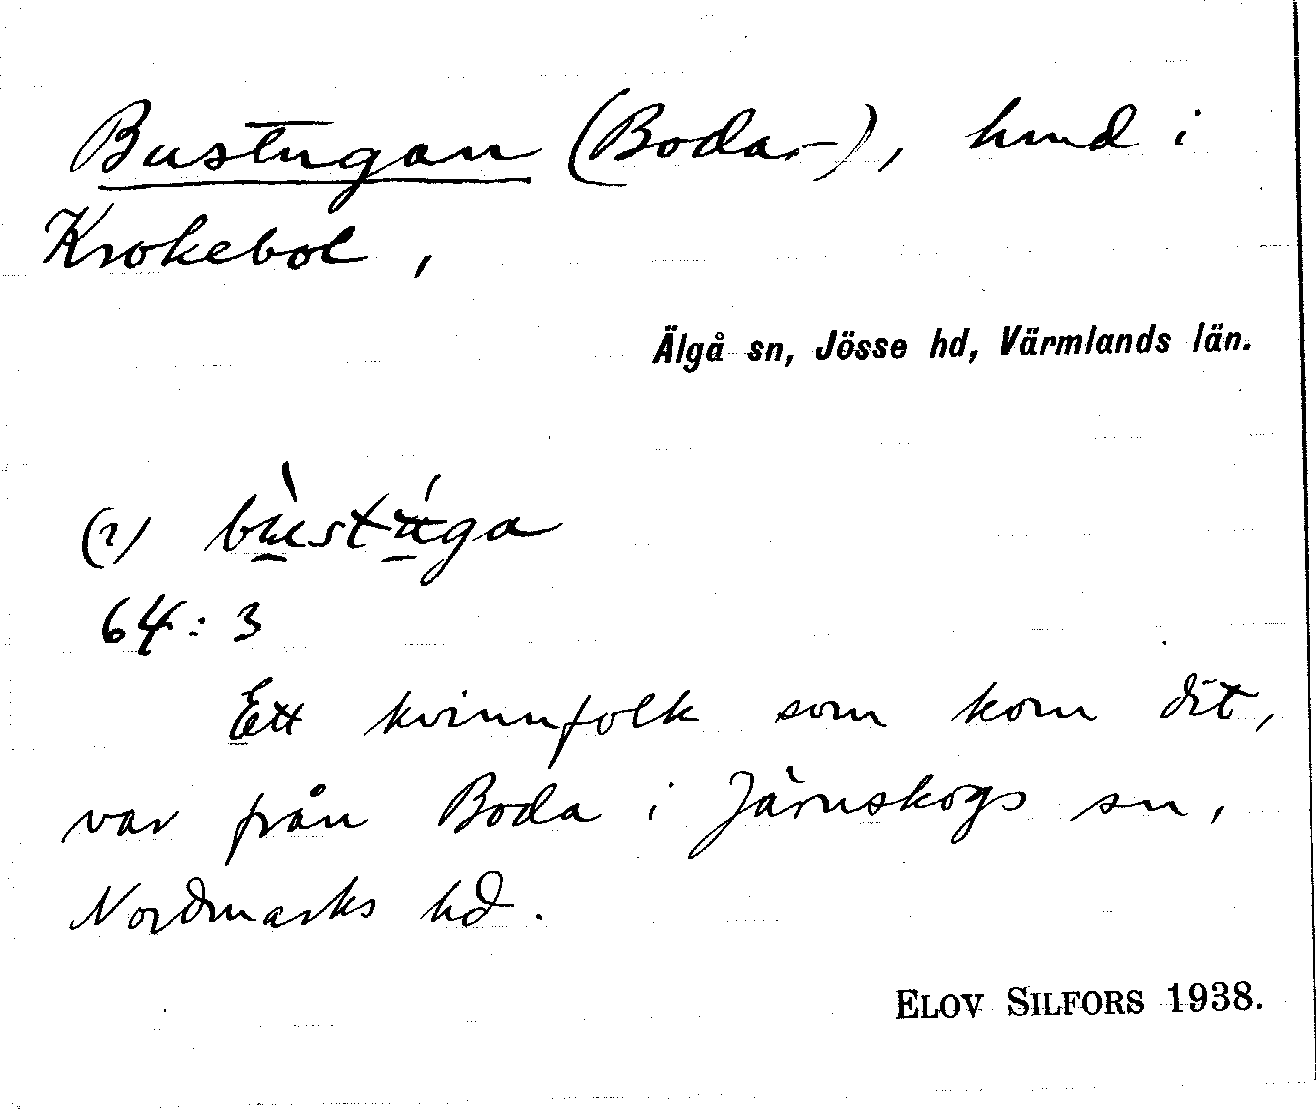 Bustugan (Boda-), hmd i
Krokebol,
Älgå sn, Jösse hd, Värmlands län.
(2) bùstúga
64:3
Ett kvinnfolk som kom dit,
var från Boda i Järnskogs sn,
Nordmarks hd.
ELOV SILFORS 1938.